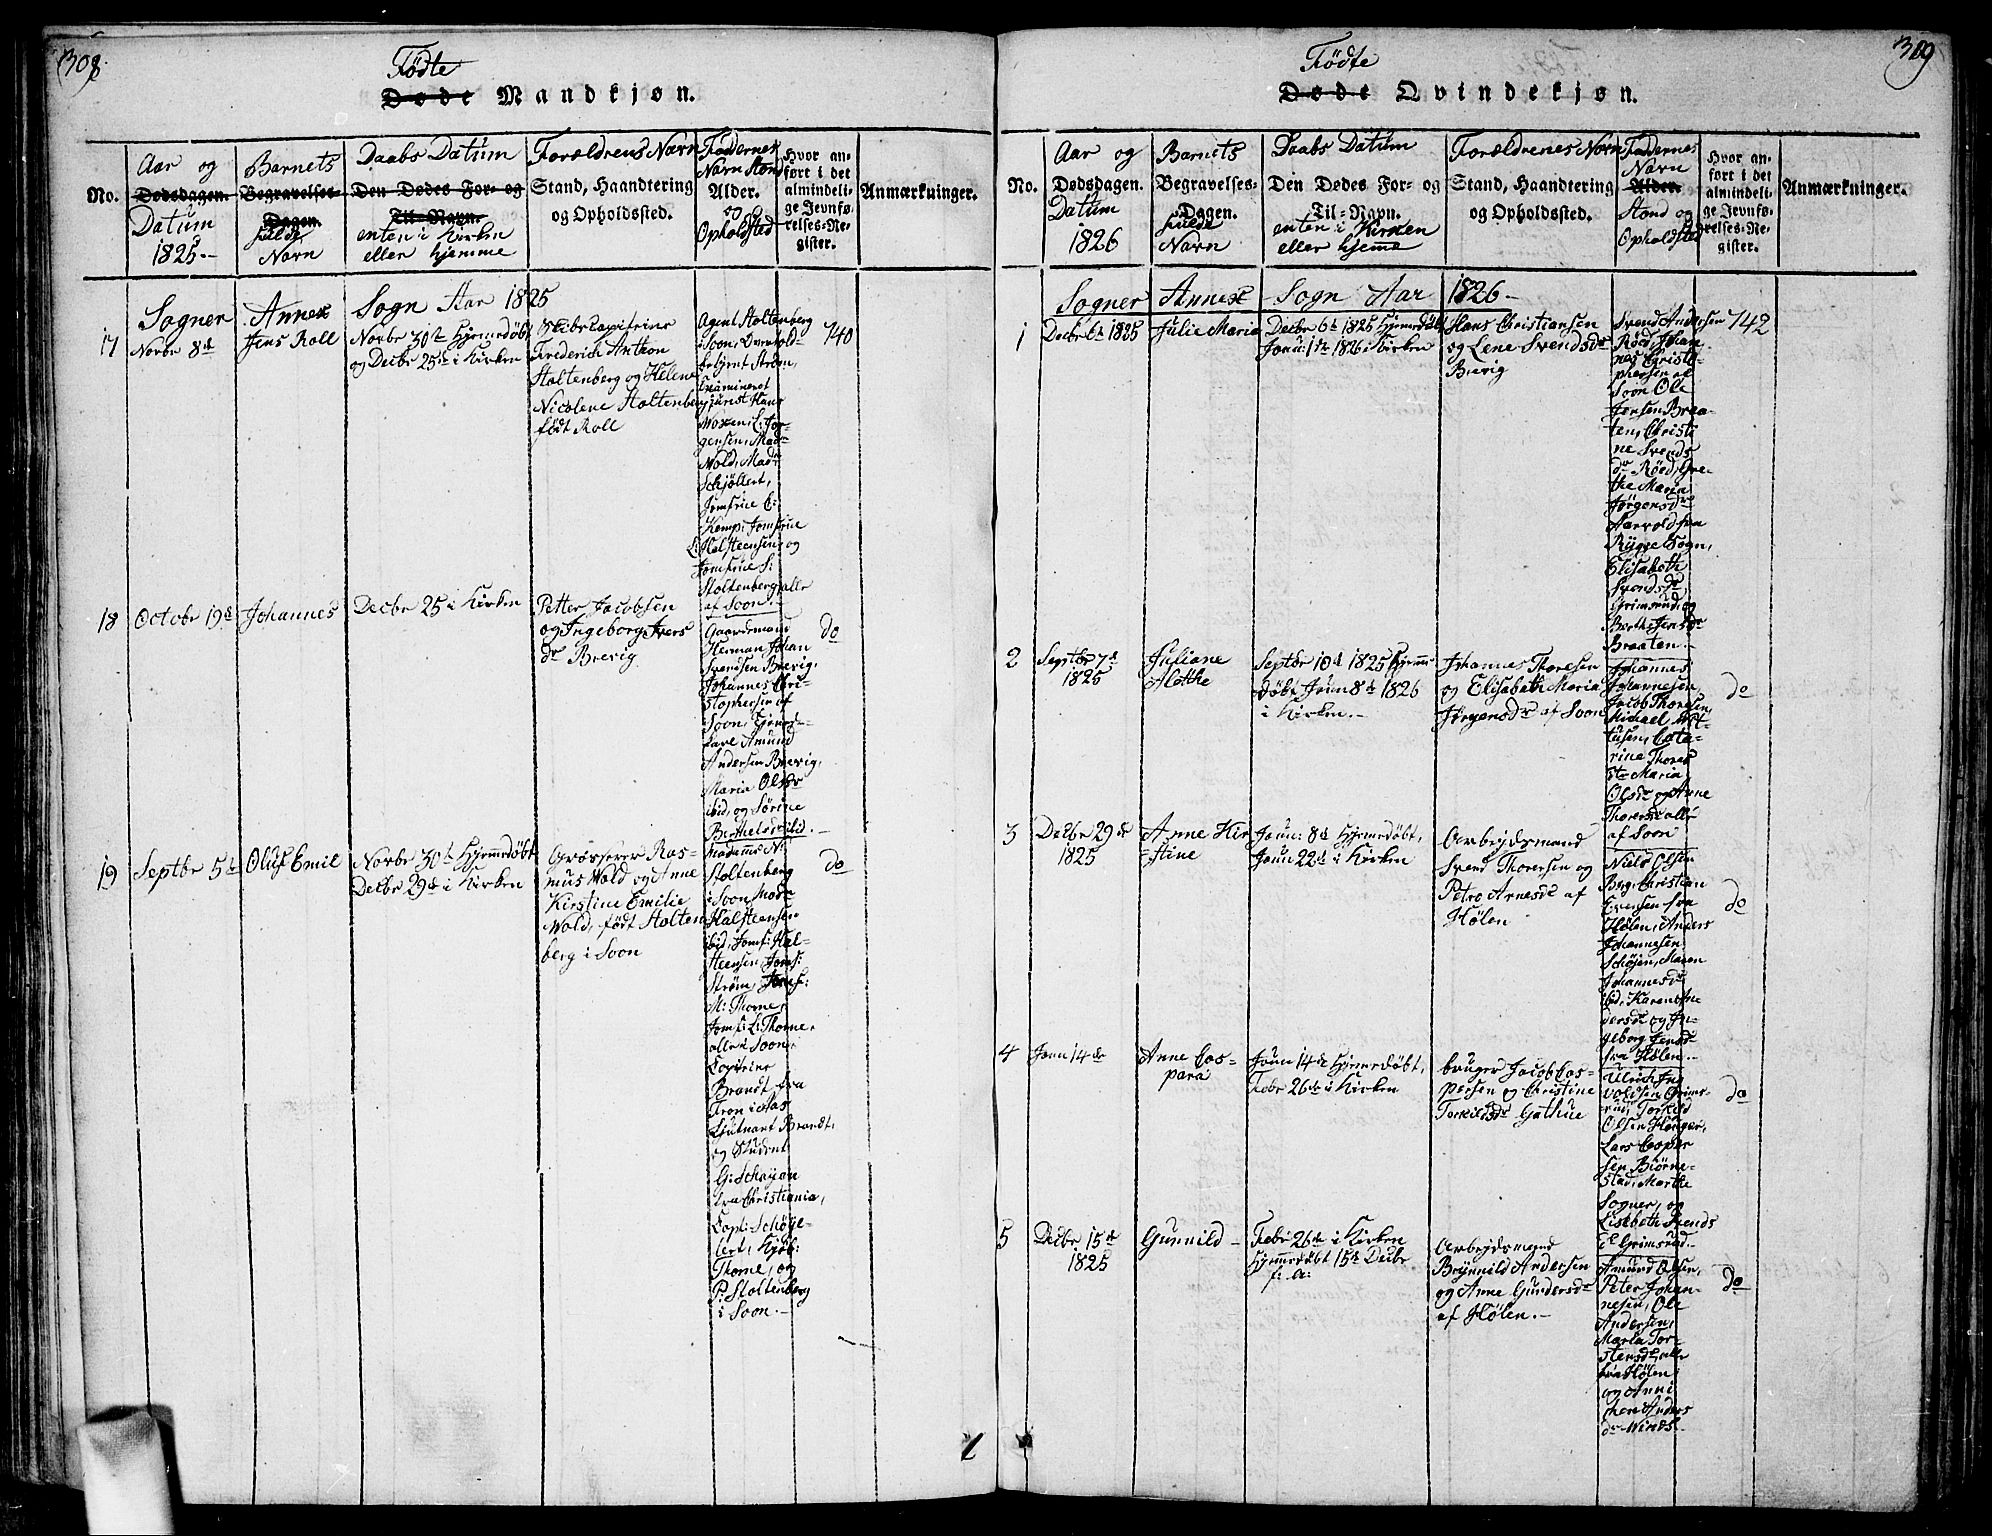 308.
Fødte
Døde Mandkjøn.
No.
Aar og
Dødsdagen.
Datum
1825.-
Barnets
Begravelses-
Dagen.
fulde
Navn
Daabs Datum
Den Dødes For- og
Til-Navn.
enten i Kirken
eller hjemme
Forældrens Navn
Stand, Haandtering
og Opholdssted.
Faddernes
Navn Stand
Alder.
og
Opholdsted
Hvor an-
ført i det
almindeli-
ge Jevnfø-
relses-Re-
gister.
Anmærkninger.
Sogner Annex Sogn Aar 1825
17
Norbr 8de
Jens Roll
Norbr 30te Hjemedøbt
og Decbr 25de i Kirken
Frederich Anthon
Stoltenberg og Helene
Nicolene Stoltenberg
født Roll
Agent Stoltenberg
i Soon,
Examineret
jurist Hans
Jør-
gensen, Madm
Wold, Madm
Schjøllert,
Jomfrue C:
Kemp, Jomfrue
L: Halsteensen og
Jomfrue S:
Stoltenberg alle
af Soon.-
740
18
Octobr 19de
Johannes
Decbr 25 i Kirken
Petter Jacobsen
og Ingeborg Ivers
dr Brevig
Gaardemand
Herman Johan
Svendsen Brevig,
Johannes Chri-
stophersen af
Soon, Tjeneste-
karl Amund
Andersen Brevig,
Maria Olsdr
ibid, og Sørine
Berthelsdr ibid.-
do
19
Septbr 5te
Oluf Emil
Norbr 30te Hjemedøbt
Decbr 29de i Kirken
Grosserer Ras-
mus Wold og Anne
Kirstine Emilie
Wold, født Stolten
berg i Soon
Madame N:
Stoltenberg
i Soon, Madm
Halsteensen
ibid, Jomf: Hal-
steensen, Jomf:
Strøm, Jomf:
M: Thorne,
Jomf: L: Thorne,
alle i Soon,
Capitaine
Brandt fra
Tron i Aas
Lieutnant Brandt,
og Student
G: Schøyan
fra Christiania,
Capt: Schøye-
lert, Kjøb:
Thorne, og
P: Stoltenberg
i Soon.-
do
309
Fødte
Døde Qvindekjøn.
No.
Aar og
Dødsdagen.
Datum
1826
Barnets
Begravelses-
Dagen.
fulde
Navn
Daabs Datum
Den Dødes For- og
Til-Navn.
enten i Kirken
eller hjemme
Forældrenes Navn
Stand, Haandtering
og Opholdssted.
Faddernes
Navn
Alder.
Stand og
Opholdsted
Hvor an-
ført i det
almindeli-
ge Jevnfø-
relses-Re-
gister.
Anmærkninger.
Sogner Annex - Sogn Aar 1826-
1
Decbr 6te 1825
Julie Maria
Decbr 6te 1825 Hjemedøbt
Janu: 1te 1826 i Kirken
Hans Christiansen
og Lene Svendsdr
Brevig
Svend Andersen
Røed, Johan-
nes Christo-
phersen af
Soon Ole
Jensen Braa-
ten, Christi
ne Svends
dr Røed, Gre-
the Maria
Jørgensdr
Aarvold fra
Rygge Sogn,
Elisabeth
Svendsdr
Grimsrud, og
Berthe Jensdr
Braaten.-
742
2
Septbr 7de
1825
Juliane
Alethe
Septbr 10de 1825 Hjemme-
døbt Janu 8de 1826
i Kirken.-
Johannes Thoresen
og Elisabeth Maria
Jørgensdr af Soon
Johannes
Johannesen,
Jacob Thoresen,
Michael Mat-
tusen, Cata-
rine Thores
dr Maria
Olsdr og Anne
Thoresdr alle
af Soon
do
3
Decbr 29de
1825
Anne Kir
stine
Janu: 8de Hjemedøbt,
Janu 22de i Kirken
Arbejdsmand
Svend Thoresen og
Petro Arnesdr af
Hølen
Niels Olsen
Berg, Christian
Evensen fra
Hølen, Anders
Johannesen
Schøien, Maren
Johannesdr
ibd, Karen An-
dersdr og In-
geborg Jensdr
fra Hølen.-
do
4
Janu 14de
Anne Cas-
para
Janu 14de Hjemedøbt,
Febr 26de i Kirken
bruger Jacob Cas-
persen og Christine
Torkildsdr Gathue
Ulrich In-
voldsen Grims-
rud, Torkild
Olsen Hunger,
Lars Casper
sen Biørne-
stad, Marthe
Sogner, og
Lisebeth Svends
dr Grimsrud.-
do
5
Decbr 15de
1825
Gunnild -
Febr 26de i Kirken
Hjemedøbt 15de Decbr
f: A:
Arbejdsmand
Brynnild Andersen
og Anne Gundersdr
af Hølen.-
Amund Olsen,
Peter Johan-
nesen, Ole
Andersen,
Maria Tor-
stensdr, alle
fra Hølen
og Anni
chen Anders
dr Winds
do